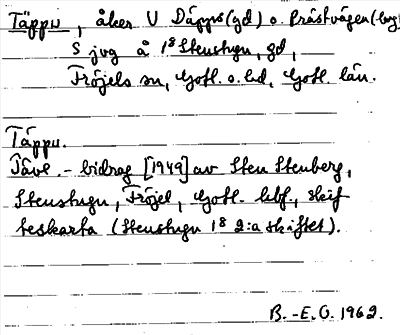 Täppu, åker V Däpps (gd) o. Prästvägen (lvg)
S jvg å 1⁸ Stenstugu, gd,
Fröjels sn, Gotl. o. hd, Gotl. län.
Täppu.
Tävl.-bidrag [1949] av Sten Stenberg,
Stenstugu, Fröjel, Gotl. kbf., skif
teskarta (Stenstugu 1⁸ 2:a skiftet).
B.-E.O. 1962.